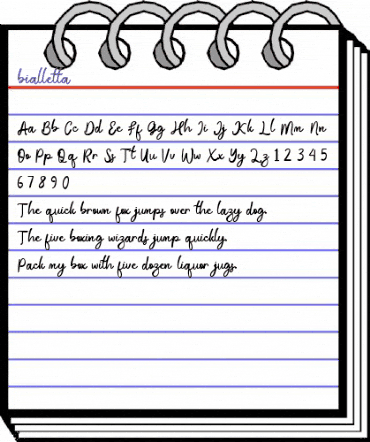 bialletta
Aa Bb Cc Dd Ee Ff Gg Hh Ii Jj Kk Ll Mm Nn
Oo Pp Qq Rr Ss Tt Uu Vv Ww Xx Yy Zz 1 2 3 4 5
6 7 8 9 0
The quick brown fox jumps over the lazy dog.
The five boxing wizards jump quickly.
Pack my box with five dozen liquor jugs.